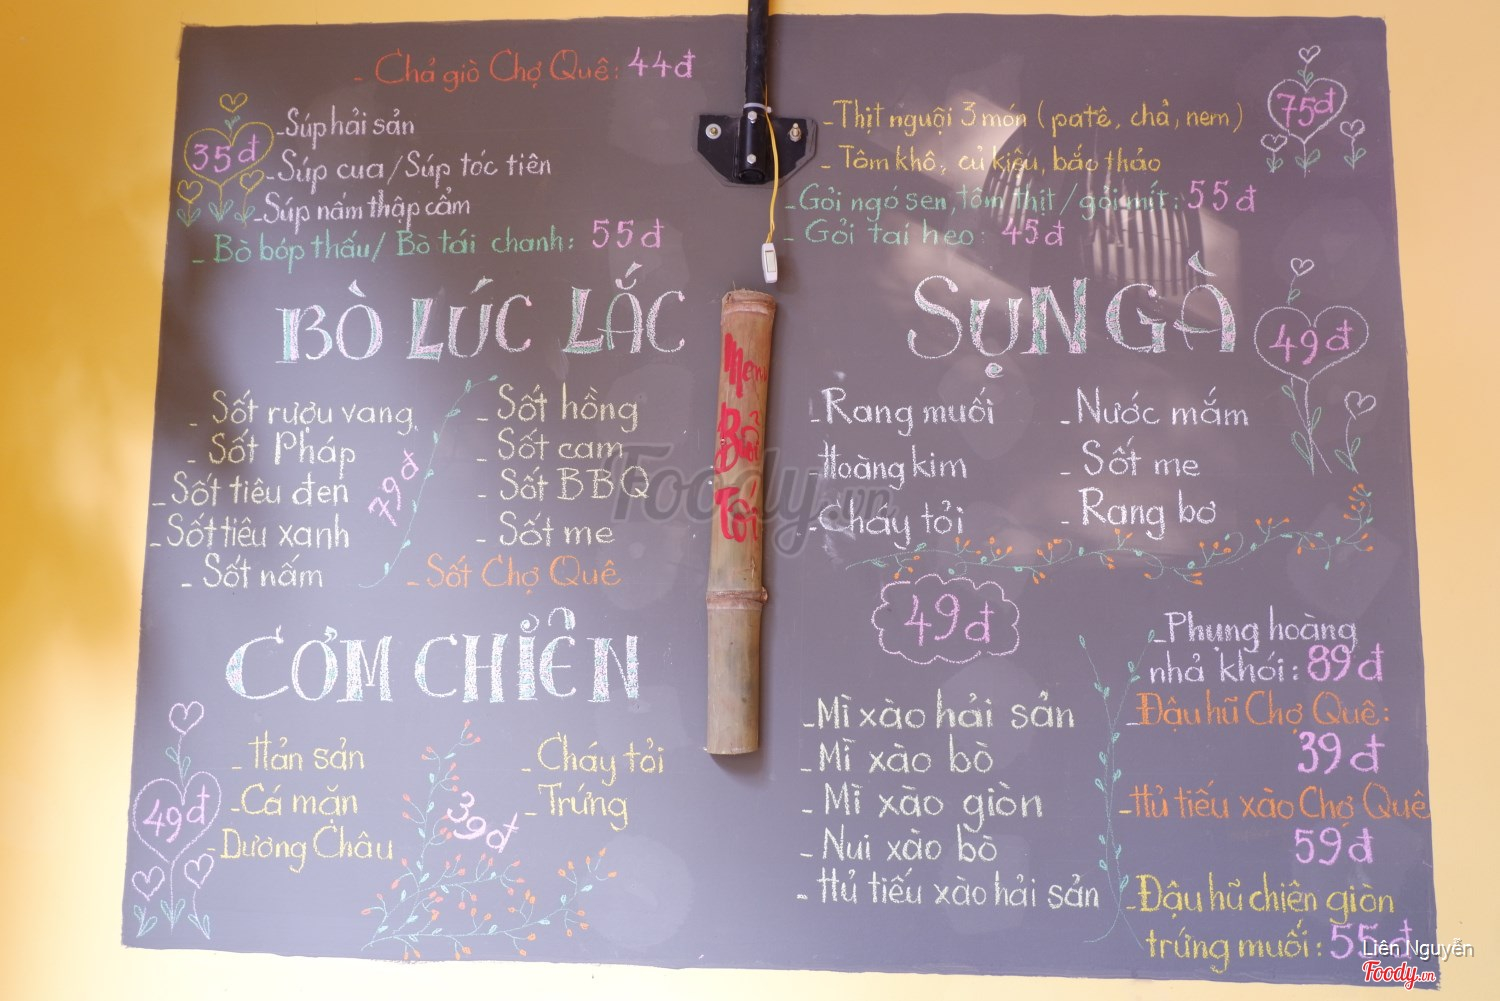 - Chả giò Chợ Quê: 44đ
35đ
- Súp hải sản
- Súp cua / Súp tóc tiên
- Súp nấm thập cẩm
- Bò bóp thấu / Bò tái chanh: 55đ
- Thịt nguội 3 món (patê, chả, nem)
- Tôm khô, củ kiệu, bắc thảo
75đ
- Gỏi ngó sen, tôm thịt / gỏi mít: 55đ
- Gỏi tai heo: 45đ
BÒ LÚC LẮC
- Sốt rượu vang
- Sốt Pháp
- Sốt tiêu đen
- Sốt tiêu xanh
- Sốt nấm
79đ
- Sốt hồng
- Sốt cam
- Sốt BBQ
- Sốt me
- Sốt Chợ Quê
Menu
Buổi
Tối
SỤN GÀ
49đ
- Rang muối
- Hoàng kim
- Cháy tỏi
- Nước mắm
- Sốt me
- Rang bơ
CƠM CHIÊN
49đ
- Hản sản
- Cá mặn
- Dương Châu
39đ
- Cháy tỏi
- Trứng
49đ
- Mì xào hải sản
- Mì xào bò
- Mì xào giòn
- Nui xào bò
- Hủ tiếu xào hải sản
- Phụng hoàng
nhả khói: 89đ
- Đậu hũ Chợ Quê:
39đ
- Hủ tiếu xào Chợ Quê
59đ
- Đậu hũ chiên giòn
trứng muối: 55đ
Foody.vn
Liên Nguyễn
Foody.vn